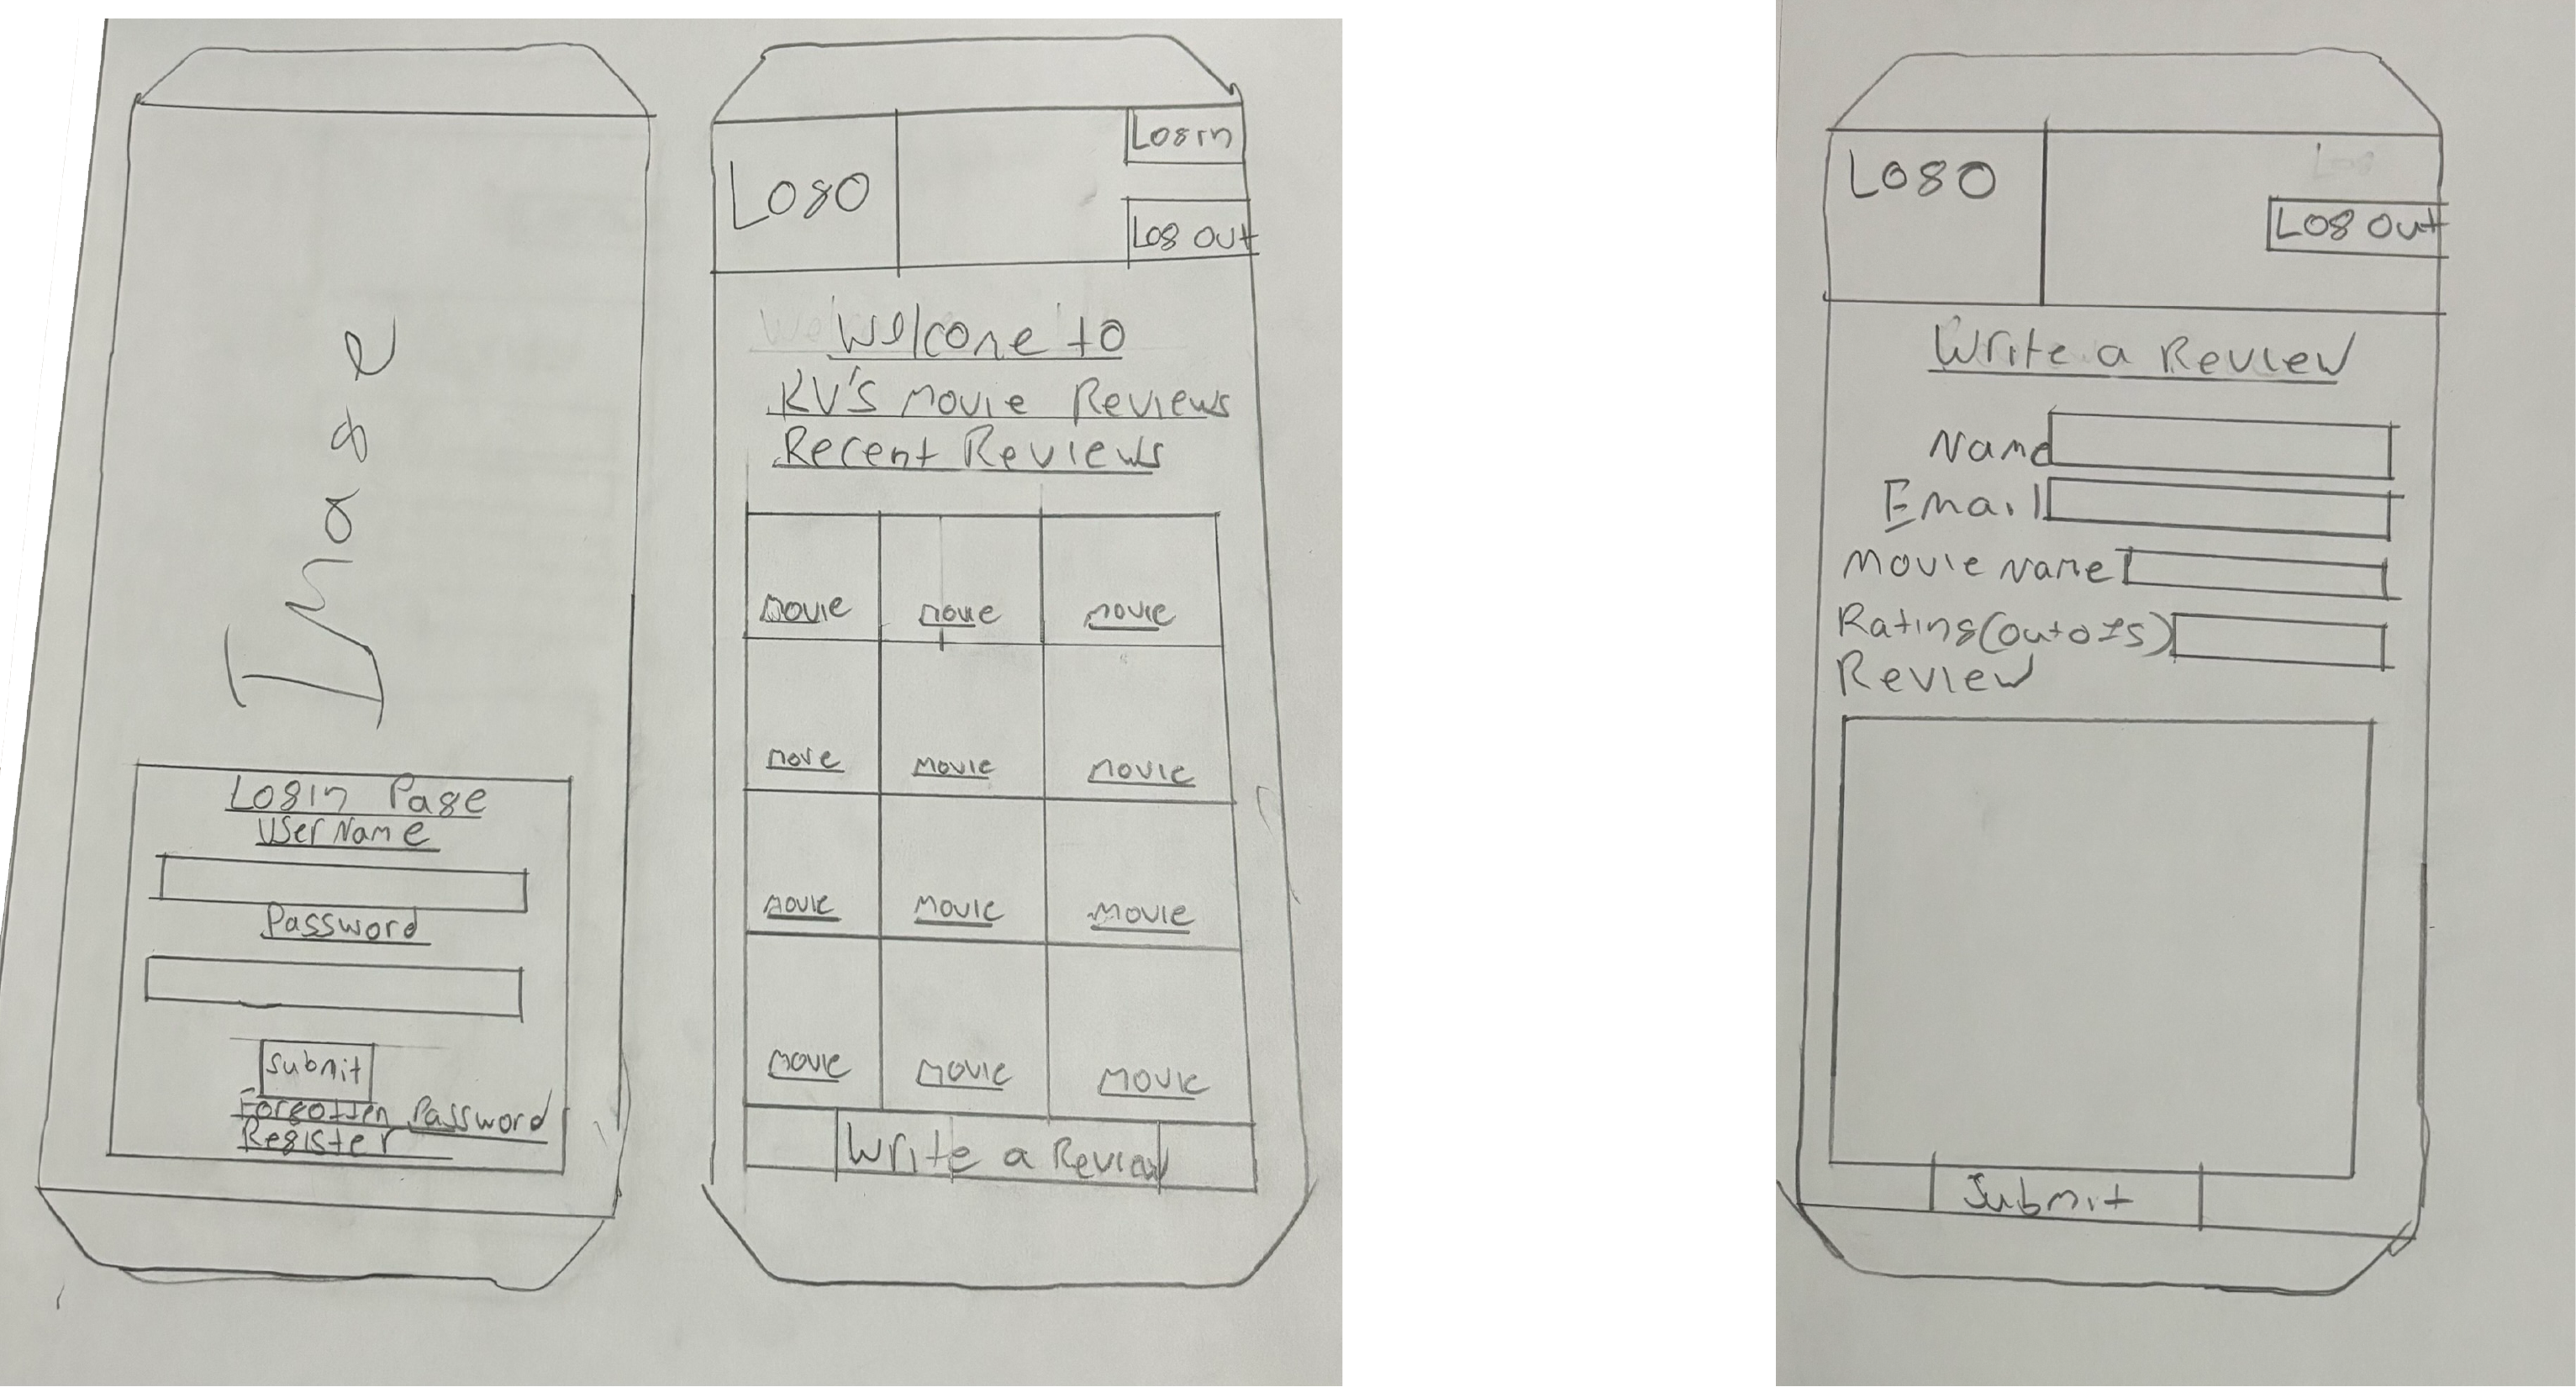 Image
Login Page
UserName
Password
Submit
Forgotten Password
Register
Logo
Login
Log out
Welcome to
KV's Movie Reviews
Recent Reviews
Movie Movie Movie
Movie Movie Movie
Movie Movie Movie
Movie Movie Movie
Write a Review
Logo
Log out
Write a Review
Name
Email
Movie Name
Rating (out of 5)
Review
Submit